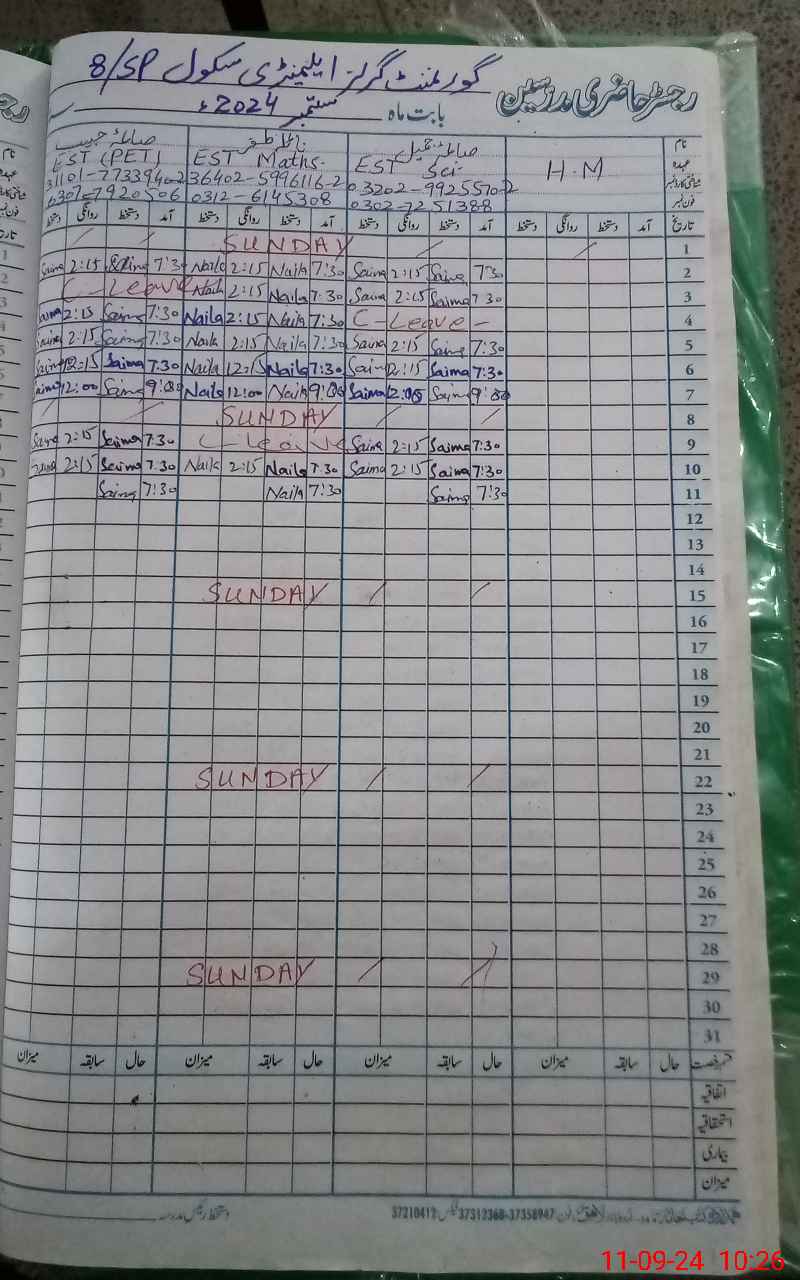 گورنمنٹ گرلز ایلیمنٹری سکول 8/SP
رجسٹر حاضری مدرسین
بابت ماہ ستمبر 2024ء
نام صائمہ جمیل نائلہ ظفر صائمہ حبیب
عہدہ H.M EST Sci- EST Maths- EST (PET)
شناختی کارڈ نمبر 36402-5996116-2
فون نمبر 0302-7251388 0312-6145308 0307-7920506
تاریخ آمد دستخط روانگی دستخط آمد دستخط روانگی دستخط آمد دستخط روانگی دستخط آمد دستخط روانگی دستخط
1 SUNDAY
2 7:30 Saima 2:15 Saima 7:30 Naila 2:15 Naila 7:30 Saima 2:15 Saima
3 7:30 Saima 2:15 Saima 7:30 Naila 2:15 Naila C-Leave
4 C-Leave- 7:30 Naila 2:15 Naila 7:30 Saima 2:15 Saima
5 7:30 Saima 2:15 Saima 7:30 Naila 2:15 Naila 7:30 Saima 2:15 Saima
6 7:30 Saima 12:15 Saima 7:30 Naila 12:15 Naila 7:30 Saima 12:15 Saima
7 9:00 Saima 12:00 Saima 9:00 Naila 12:00 Naila 9:00 Saima 12:00 Saima
8 SUNDAY
9 7:30 Saima 2:15 Saima C-leave 7:30 Saima 2:15 Saima
10 7:30 Saima 2:15 Saima 7:30 Naila 2:15 Naila 7:30 Saima 2:15 Saima
11 7:30 Saima 7:30 Naila 7:30 Saima
12
13
14
15 SUNDAY
16
17
18
19
20
21
22 SUNDAY
23
24
25
26
27
28
29 SUNDAY
30
31
قسم رخصت حال سابقہ میزان حال سابقہ میزان حال سابقہ میزان حال سابقہ میزان
اتفاقیہ
استحقاقیہ
بیماری
میزان
دستخط رئیس مدرسہ
فون: 37358947-37312368 فیکس: 37210412
11-09-24 10:26